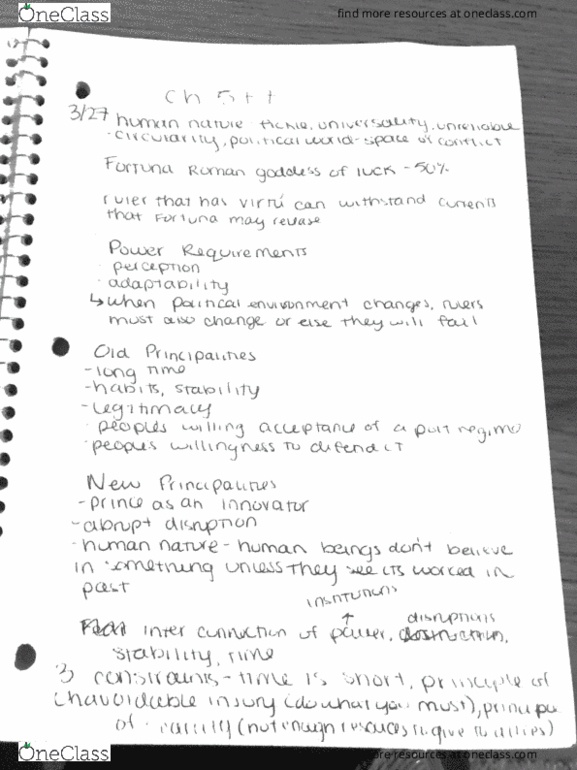 OneClass
find more resources at oneclass.com
3/27 human nature fickle, universality, unreliable
- circularity, political world - space of conflict
Fortuna Roman goddess of luck - 50%
ruler that has virtú can withstand currents
that Fortuna may
Power Requirements
· perception
· adaptability
↳ when political environment changes, rulers
must also change or else they will fail
Old Principalities
- long time
- habits, stability
- legitimacy
· peoples willing acceptance of a regime
· peoples willingness to defend it
New Principalities
- prince as an innovator
- abrupt disruption
- human nature - human beings don't believe
in something unless they see its worked in
past
institutions
↑ disruptions
inter connection of power,
stability, time
3 constraints - time is short, principle of
injury (do what you must),
of (not enough resources to give to allies)
OneClass
more resources at oneclass.com